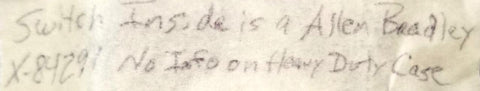 Switch Inside is a Allen Bradley
X-84291 No Info on Heavy Duty Case